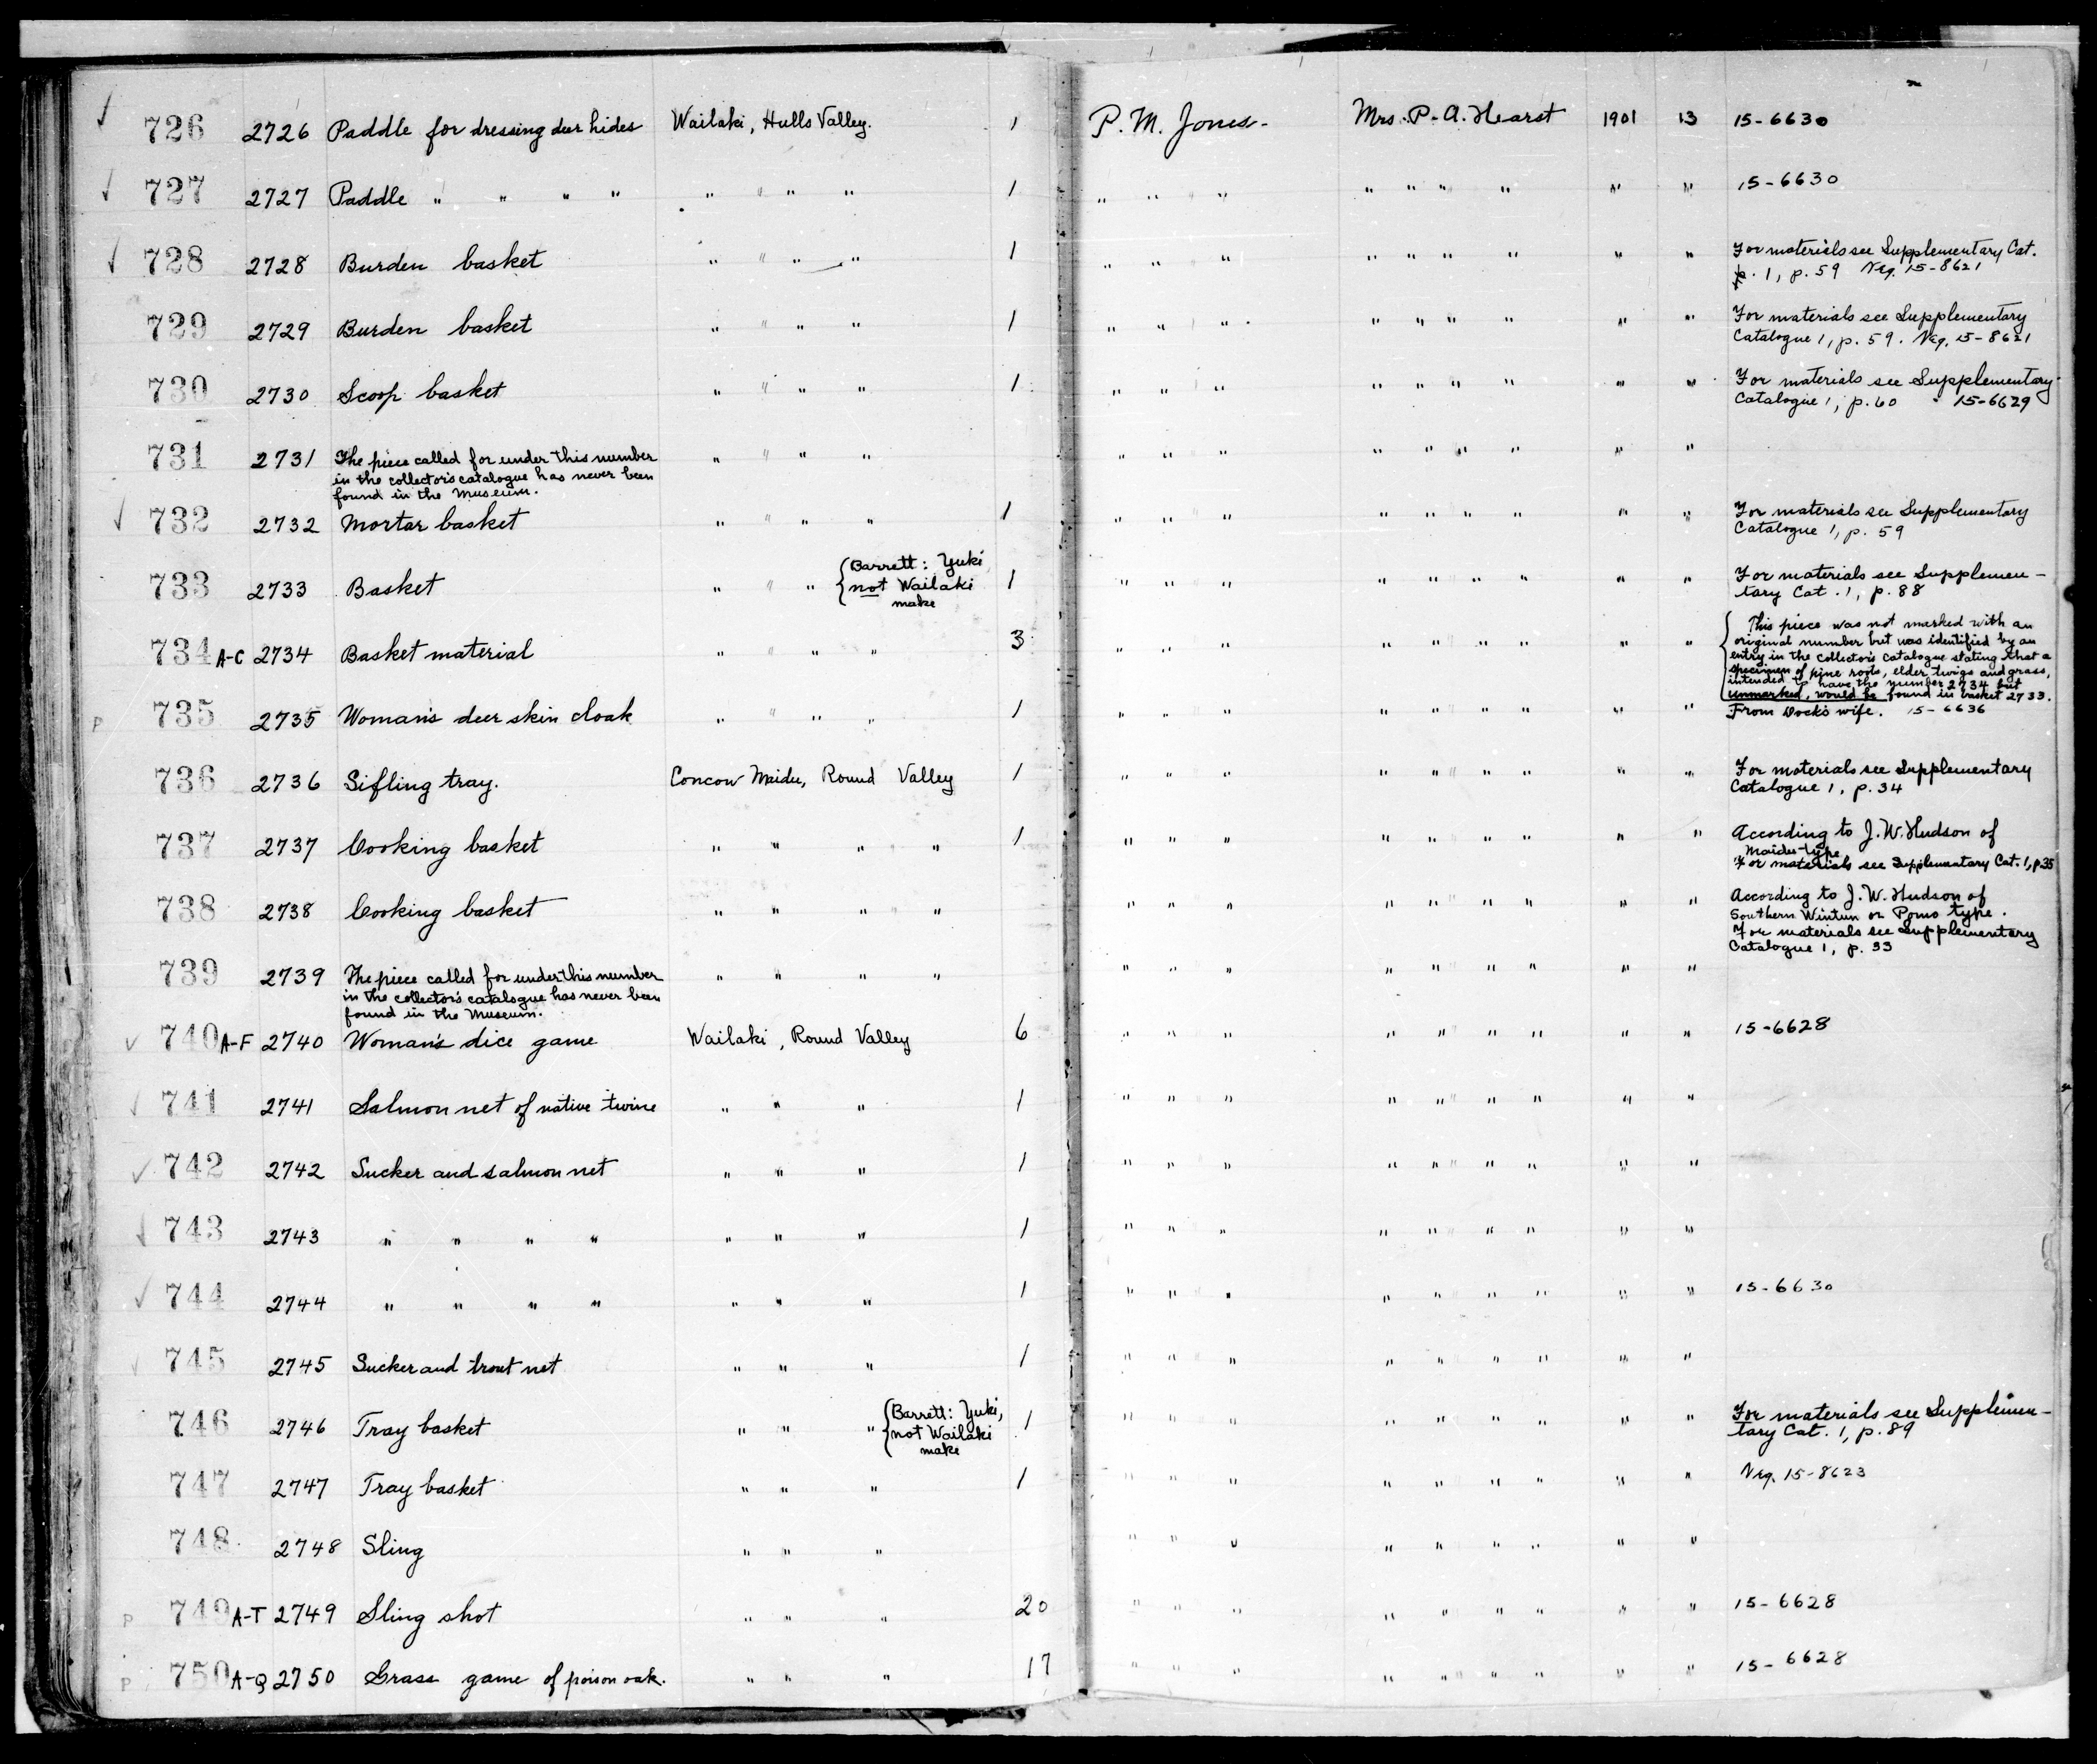 ✓ 726 2726 Paddle for dressing deer hides Wailaki, Hulls Valley. 1 P. M. Jones - Mrs. P. A. Hearst 1901 13 15-6630
✓ 727 2727 Paddle " " " " " " " " 1 " " " " " " " " " 15-6630
✓ 728 2728 Burden basket " " " " 1 " " " " " " " " " For materials see Supplementary Cat.
p. 1, p. 59 Neg. 15-8621
729 2729 Burden basket " " " " 1 " " " " " " " " " For materials see Supplementary
Catalogue 1, p. 59. Neg. 15-8621
730 2730 Scoop basket " " " " 1 " " " " " " " " " For materials see Supplementary
Catalogue 1, p. 60 15-6629
731 2731 The piece called for under this number " " " " " " " " " " " " "
in the collector's catalogue has never been
found in the Museum.
✓ 732 2732 Mortar basket " " " " 1 " " " " " " " " " For materials see Supplementary
Catalogue 1, p. 59
733 2733 Basket " " " { Barrett: Yuki 1 " " " " " " " " " For materials see Supplemen-
not Wailaki tary Cat. 1, p. 88
make
734 A-C 2734 Basket material " " " " 3 " " " " " " " " " { This piece was not marked with an
original number but was identified by an
entry in the collector's catalogue stating that a
specimen of pine roots, elder twigs and grass,
intended to have the number 2734 but
unmarked, would be found in basket 2733.
P 735 2735 Woman's deer skin cloak " " " " 1 " " " " " " " " " From Dock's wife. 15-6636
736 2736 Sifling tray. Concow Maidu, Round Valley 1 " " " " " " " " " For materials see Supplementary
Catalogue 1, p. 34
737 2737 Cooking basket " " " " 1 " " " " " " " " " According to J. W. Hudson of
Maidu type
For materials see Supplementary Cat. 1, p 35
738 2738 Cooking basket " " " " " " " " " " " " " According to J. W. Hudson of
Southern Wintun or Pomo type.
For materials see Supplementary
Catalogue 1, p. 33
739 2739 The piece called for under this number " " " " " " " " " " " " "
in the collector's catalogue has never been
found in the Museum.
✓ 740 A-F 2740 Woman's dice game Wailaki, Round Valley 6 " " " " " " " " " 15-6628
✓ 741 2741 Salmon net of native twine " " " 1 " " " " " " " " "
✓ 742 2742 Sucker and salmon net " " " 1 " " " " " " " " "
✓ 743 2743 " " " " " " " 1 " " " " " " " " "
✓ 744 2744 " " " " " " " 1 " " " " " " " " " 15-6630
✓ 745 2745 Sucker and trout net " " " 1 " " " " " " " " "
746 2746 Tray basket " " " { Barrett: Yuki, 1 " " " " " " " " " For materials see Supplemen-
not Wailaki tary Cat. 1, p. 89
make
747 2747 Tray basket " " " 1 " " " " " " " " " Neg. 15-8623
748 2748 Sling " " " " " " " " " " " "
P 749 A-T 2749 Sling shot " " " 20 " " " " " " " " " 15-6628
P 750 A-Q 2750 Grass game of poison oak. " " " 17 " " " " " " " " " 15-6628